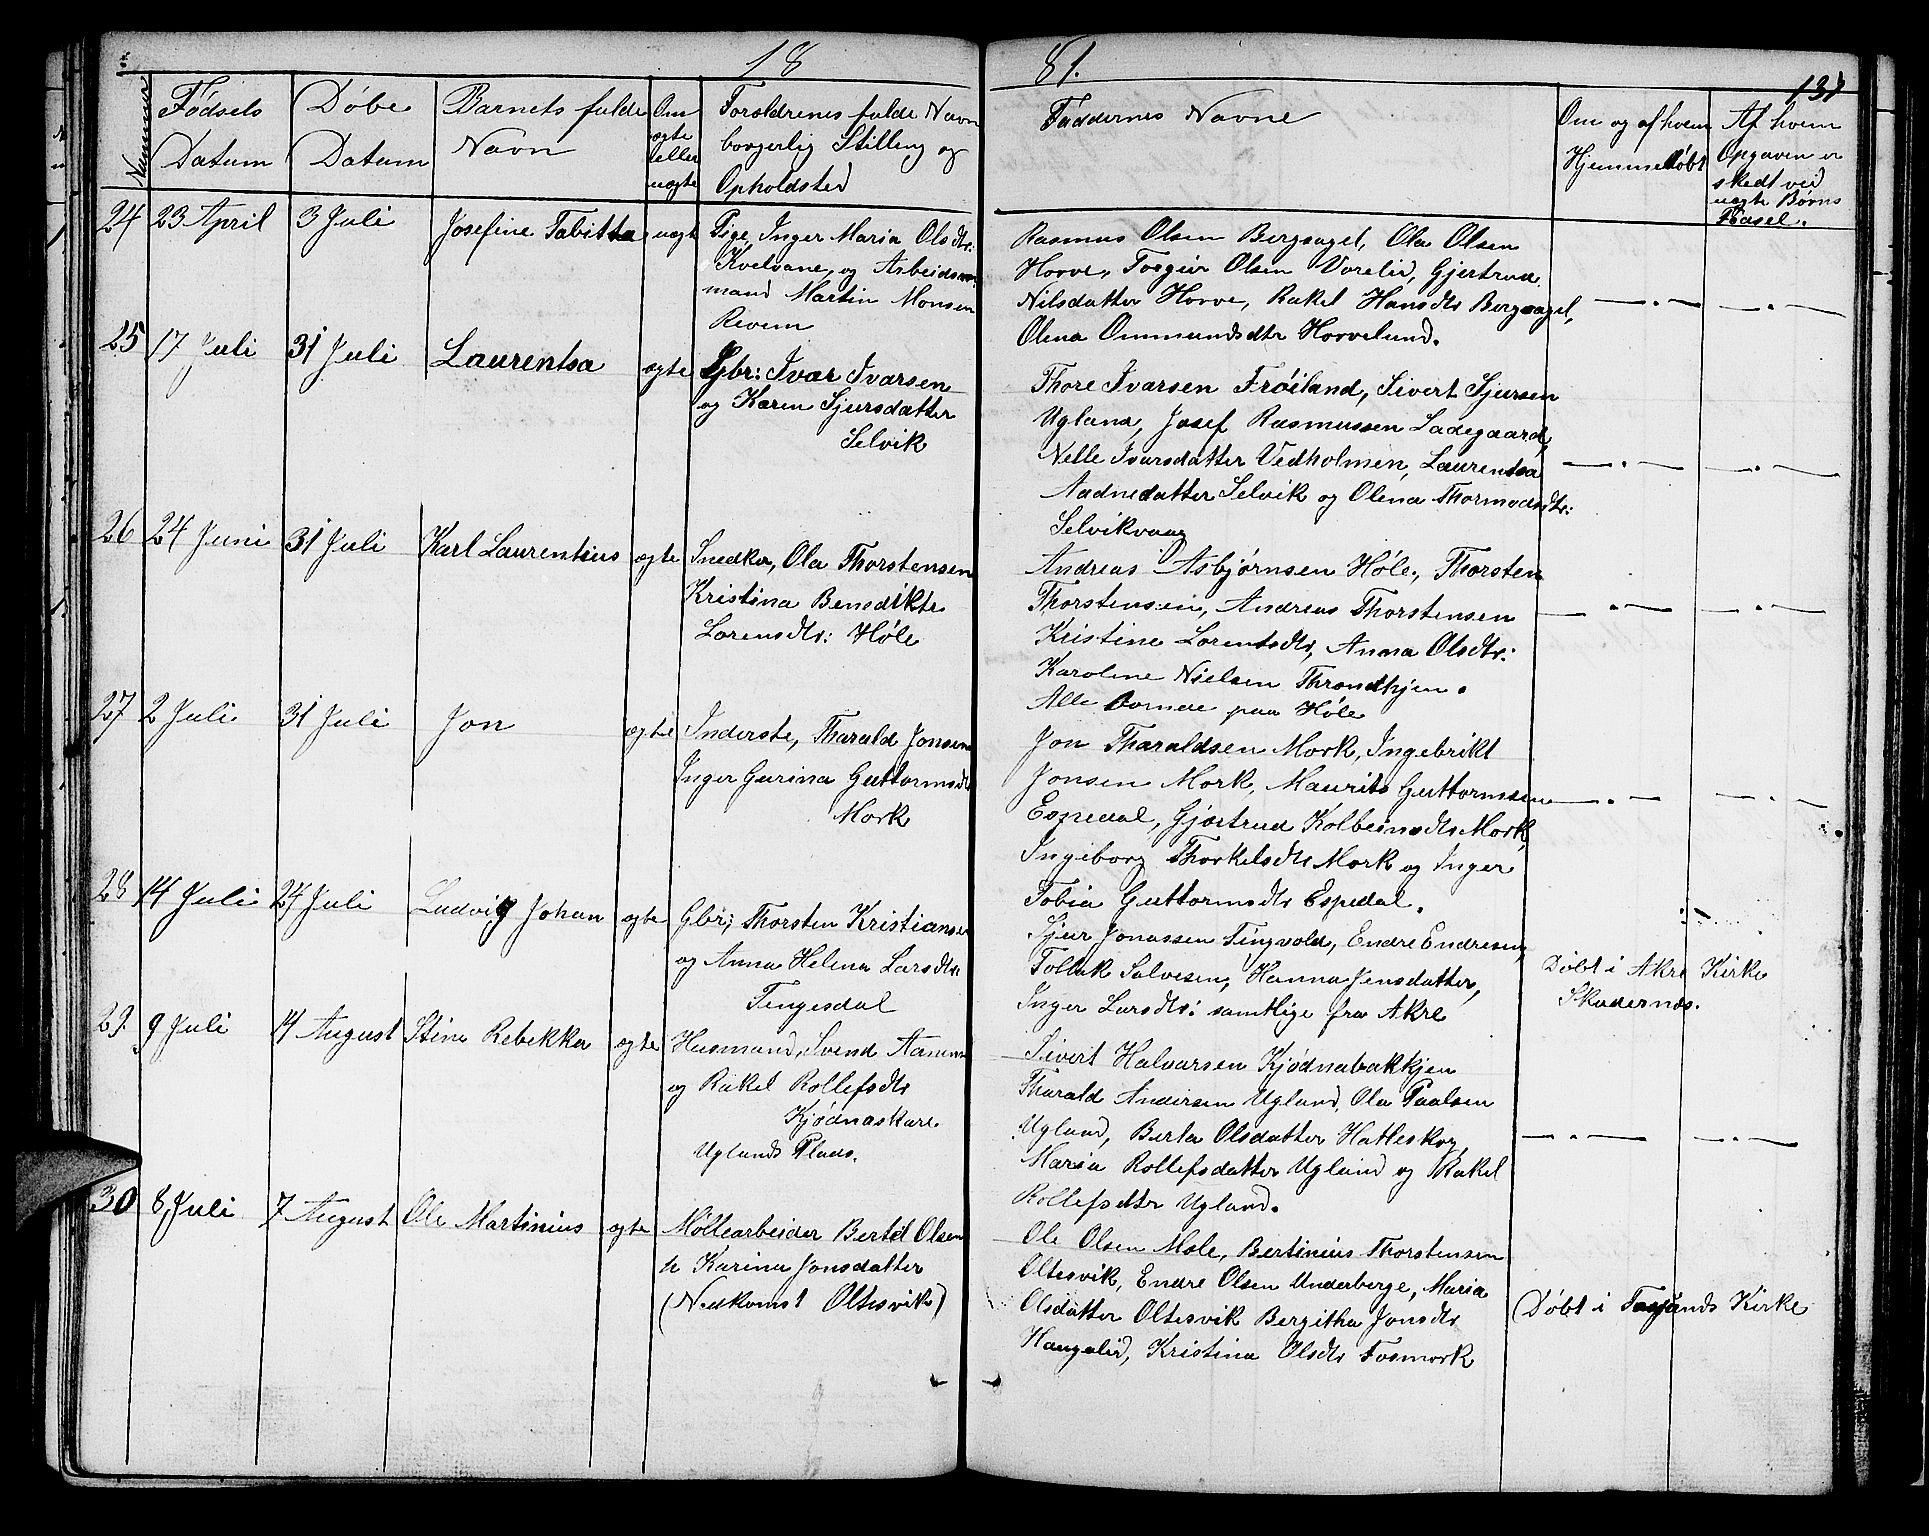 1881.
131
Nummer
Fødsels Datum
Døbe Datum
Barnets fulde Navn
Om ægte eller uægte
Foræeldrenes fulde Navn borgerlig Stilling og Opholdsted
Faddernes Navne
Om og af hvem Hjemmedøbt
Af hvem Opgaven er skedt ved uægte Børns Fødsel.
24 23 April 3 Juli Josefine Tabitta uægt
Pige, Inger Maria Olsdtr:
Kvelvane, og Arbeids
mand Martin Monsen
Revem
Rasmus Olsen Bergsagel, Ola Olsen
Horve, Torgier Olsen Vorelid, Gjertrud
Nilsdatter Horve, Rakel Hansdtr Bergsagel,
Olena Ommundsdtr Horvelund.
25 17 Juli 31 Juli Laurentsa ægte
Gbr: Ivar Ivarsen
og Karen Sjursdatter
Selvik
Thore Ivarsen Frøiland, Sivert Sjursen
Ugland, Josef Rasmussen Ladegaard,
Nelle Ivarsdatter Vedholmen, Laurentsa
Aadnedatter Selvik og Olena Thormodsdtr:
Selvikvaag
26 24 Juni 31 Juli Karl Laurentius ægte
Snedker, Ola Thorstensen
Kristina Benedikte
Lorensdtr: Høle
Andreas Asbjørnsen Høle, Thorsten
Thorstensen, Andreas Thorstensen
Kristine Lorentsdtr, Anna Olsdtr:
Karoline Nielsen Throndhjem.
Alle boende paa Høle
27 2 Juli 31 Juli Jon ægte
Inderste, Tharald Jonsen
Inger Gurina Guttormsdtr
Mork
Jon Tharaldsen Mork, Ingebrikt
Jonsen Mork, Maurits Guttormsen
Espedal, Gjertrud Kolbeinsdtr Mork,
Ingeborg Thorkelsdtr Mork og Inger
Tobia Guttormsdtr Espedal.
28 14 Juli 24 Juli Ludvig Johan ægte
Gbr; Thorsten Kristiansen
og Anna Helena Larsdtr.
Tengesdal
Sjur Jonassen Tingvold, Endre Endresen,
Tollak Salvesen, Hanna Jensdatter,
Inger Larsdtr: samtlige fra Akre
Døbt i Akre Kirke
Skudernæs.
29. 9 Juli 14 August Stine Rebekka ægte
Husmand, Svend Aanen
og Rakel Rollefsdtr
Kjødnaskare.
Uglands Plads.
Sivert Halvarsen Kjødnabakkjen
Tharald Andersen Ugland, Ola Paalsen
Ugland, Berta Olsdatter Hatleskog,
Maria Rollefsdatter Ugland og Rakel
Rollefsdtr Ugland.
30 8 Juli 7 August Ole Martinius ægte
Møllearbeider Bertel Olsen
h Karina Jonsdatter
(Nedkomst Oltesvik)
Ole Olsen Mæle, Bertinius Thorstensen
Oltesvik, Endre Olsen Underberge, Maria
Olsdatter Oltesvik Bergitha Jonsdtr
Haugalid, Kristina Olsdtr Fosmork
(Døbt i Forsands Kirke